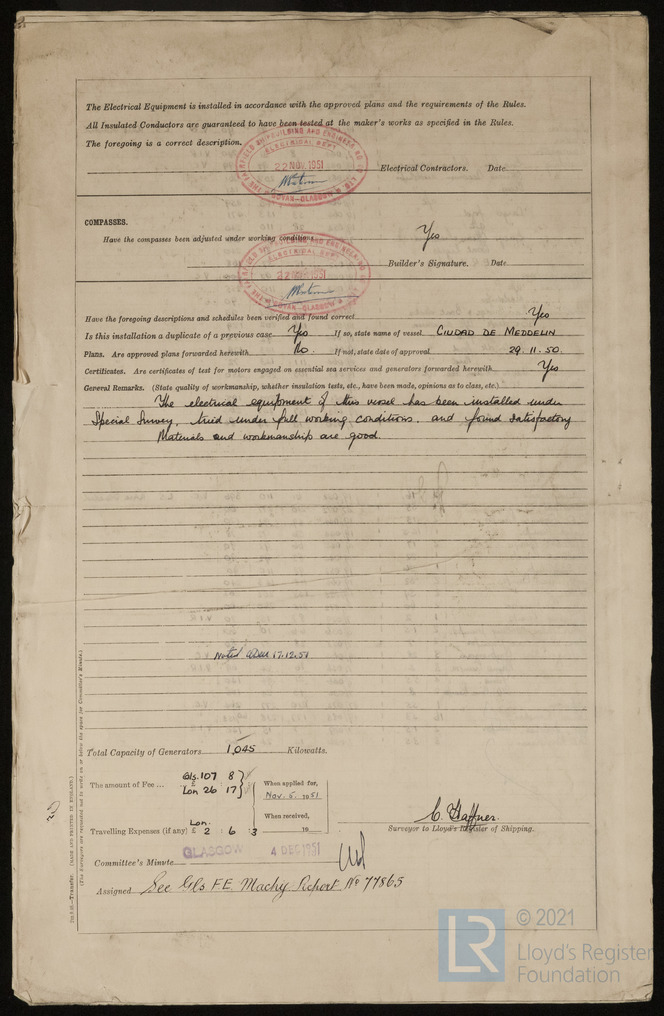 The Electrical Equipment is installed in accordance with the approved plans and the requirements of the Rules.
All Insulated Conductors are guaranteed to have been tested at the maker's works as specified in the Rules.
The foregoing is a correct description.
ELECTRICAL DEPT
22 NOV. 1951
GOVAN-GLASGOW
Electrical Contractors. Date
COMPASSES.
Have the compasses been adjusted under working conditions Yes
ELECTRICAL DEPT
GOVAN-GLASGOW
Builder's Signature. Date
Have the foregoing descriptions and schedules been verified and found correct Yes
Is this installation a duplicate of a previous case Yes If so, state name of vessel CIUDAD DE MEDDELIN
Plans. Are approved plans forwarded herewith No. If not, state date of approval 29.11.50.
Certificates. Are certificates of test for motors engaged on essential sea services and generators forwarded herewith Yes
General Remarks. (State quality of workmanship, whether insulation tests, etc., have been made, opinions as to class, etc.)
The electrical equipment of this vessel has been installed under
Special Survey, tried under full working conditions, and found satisfactory
Materials and workmanship are good.
Noted 17.12.51
Total Capacity of Generators 1,045 Kilowatts.
The amount of Fee ... Gls. 107 8
Lon 26 17
When applied for,
Nov. 5. 1951
When received,
19
Travelling Expenses (if any) £ Lon. 2 : 6 : 3
C. Haffner.
Surveyor to Lloyd's Register of Shipping.
Committee's Minute GLASGOW 4 DEC 1951
Assigned See Gls. F.E. Machy Report No 77865
(MADE AND PRINTED IN ENGLAND.)
(The Surveyors are requested not to write on or below the space for Committee's Minute.)
LR
© 2021
Lloyd's Register
Foundation